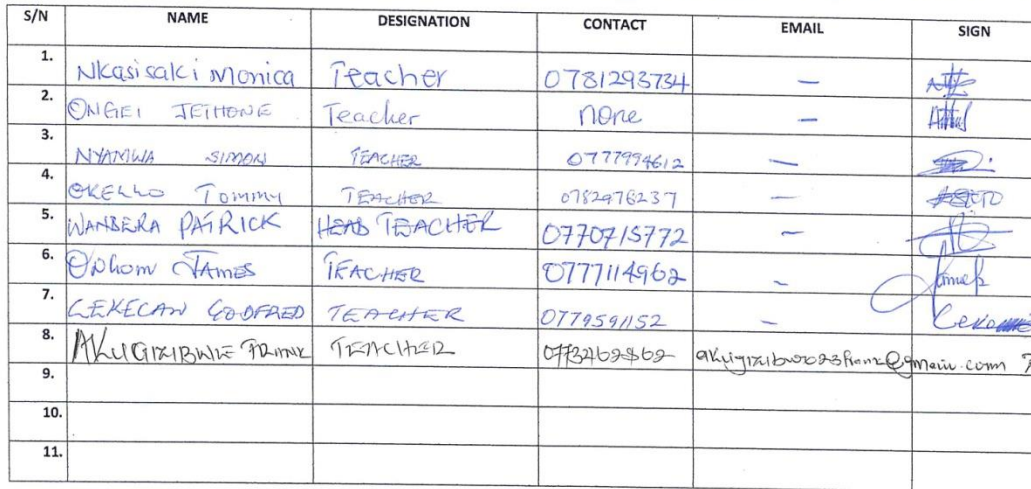 S/N NAME DESIGNATION CONTACT EMAIL SIGN
1. Nkasisaki Monica Teacher 0781293734 —
2. ONGEI JEITHONE Teacher none —
3. NYAMWA SIMON TEACHER 0777994612 —
4. OKELLO Tommy TEACHER 0782976237 —
5. WANDERA PATRICK HEAD TEACHER 0770715772 —
6. ODhom JAMES TEACHER 0777114962 — James
7. LEKECAN GODFRED TEACHER 0779591152 —
8. AKUGIZIBWE FRANK TEACHER
9.
10.
11.